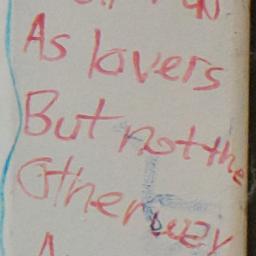 As lovers
But not the
Other way